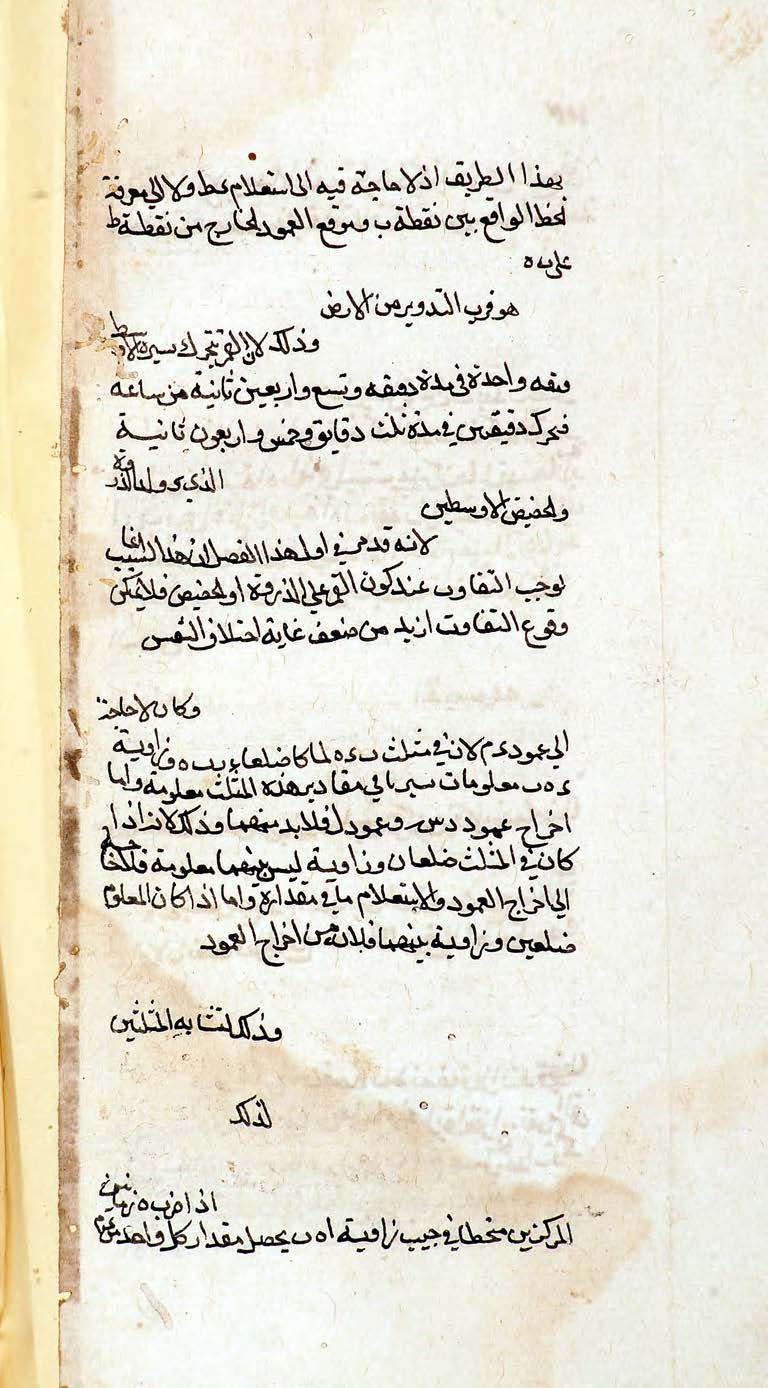 بهذا الطريق اذ لا حاجة فيه الى استعلام عط ولا الى معرفة
الخط الواقع بين نقطة ب وموقع العمود الخارج من نقطة ط
على ب ه
هو قرب التدوير من الارض
وذلك لان القمر يتحرك بسيره الاوسط
دقيقه واحدة في مدة دقيقه وتسع واربعين ثانية من ساعة
فيحرك دقيقتين في مدة ثلث دقايق وخمس واربعون ثانية
الذروة
والحضيض الاوسطين
لانه قد مر في اول هذا الفصل ان هذا السبب انما
يوجب التفاوت عند كون القمر على الذروة او الحضيض فلا يمكن
وقوع التفاوت ازيد من ضعف غاية اختلاف الشمس
وكان لا حاجة
الى عمود ءم لان في مثلث ب ءه لما كا ضلعا ءب ب ه وزاوية
ء ه ب معلومات سيرنا في مقادير هذه المثلث معلومة واما
اخراج عمود دس وعمود ل فلا بد منهما وذلك لانه اذا
كان في المثلث ضلعان وزاوية ليس بينهما معلومة فلا حاجة
الى اخراج العمود والاستعلام ما في مقداره واما اذا كان المعلوم
ضلعين وزاوية بينهما فلا بد من اخراج العمود
وذلك لتشابه المثلثين
لذلك
اذا ضرب ه ز ما بين
المركزين منحطا في جيب زاوية ا ه ب يحصل مقدار كل واحد من